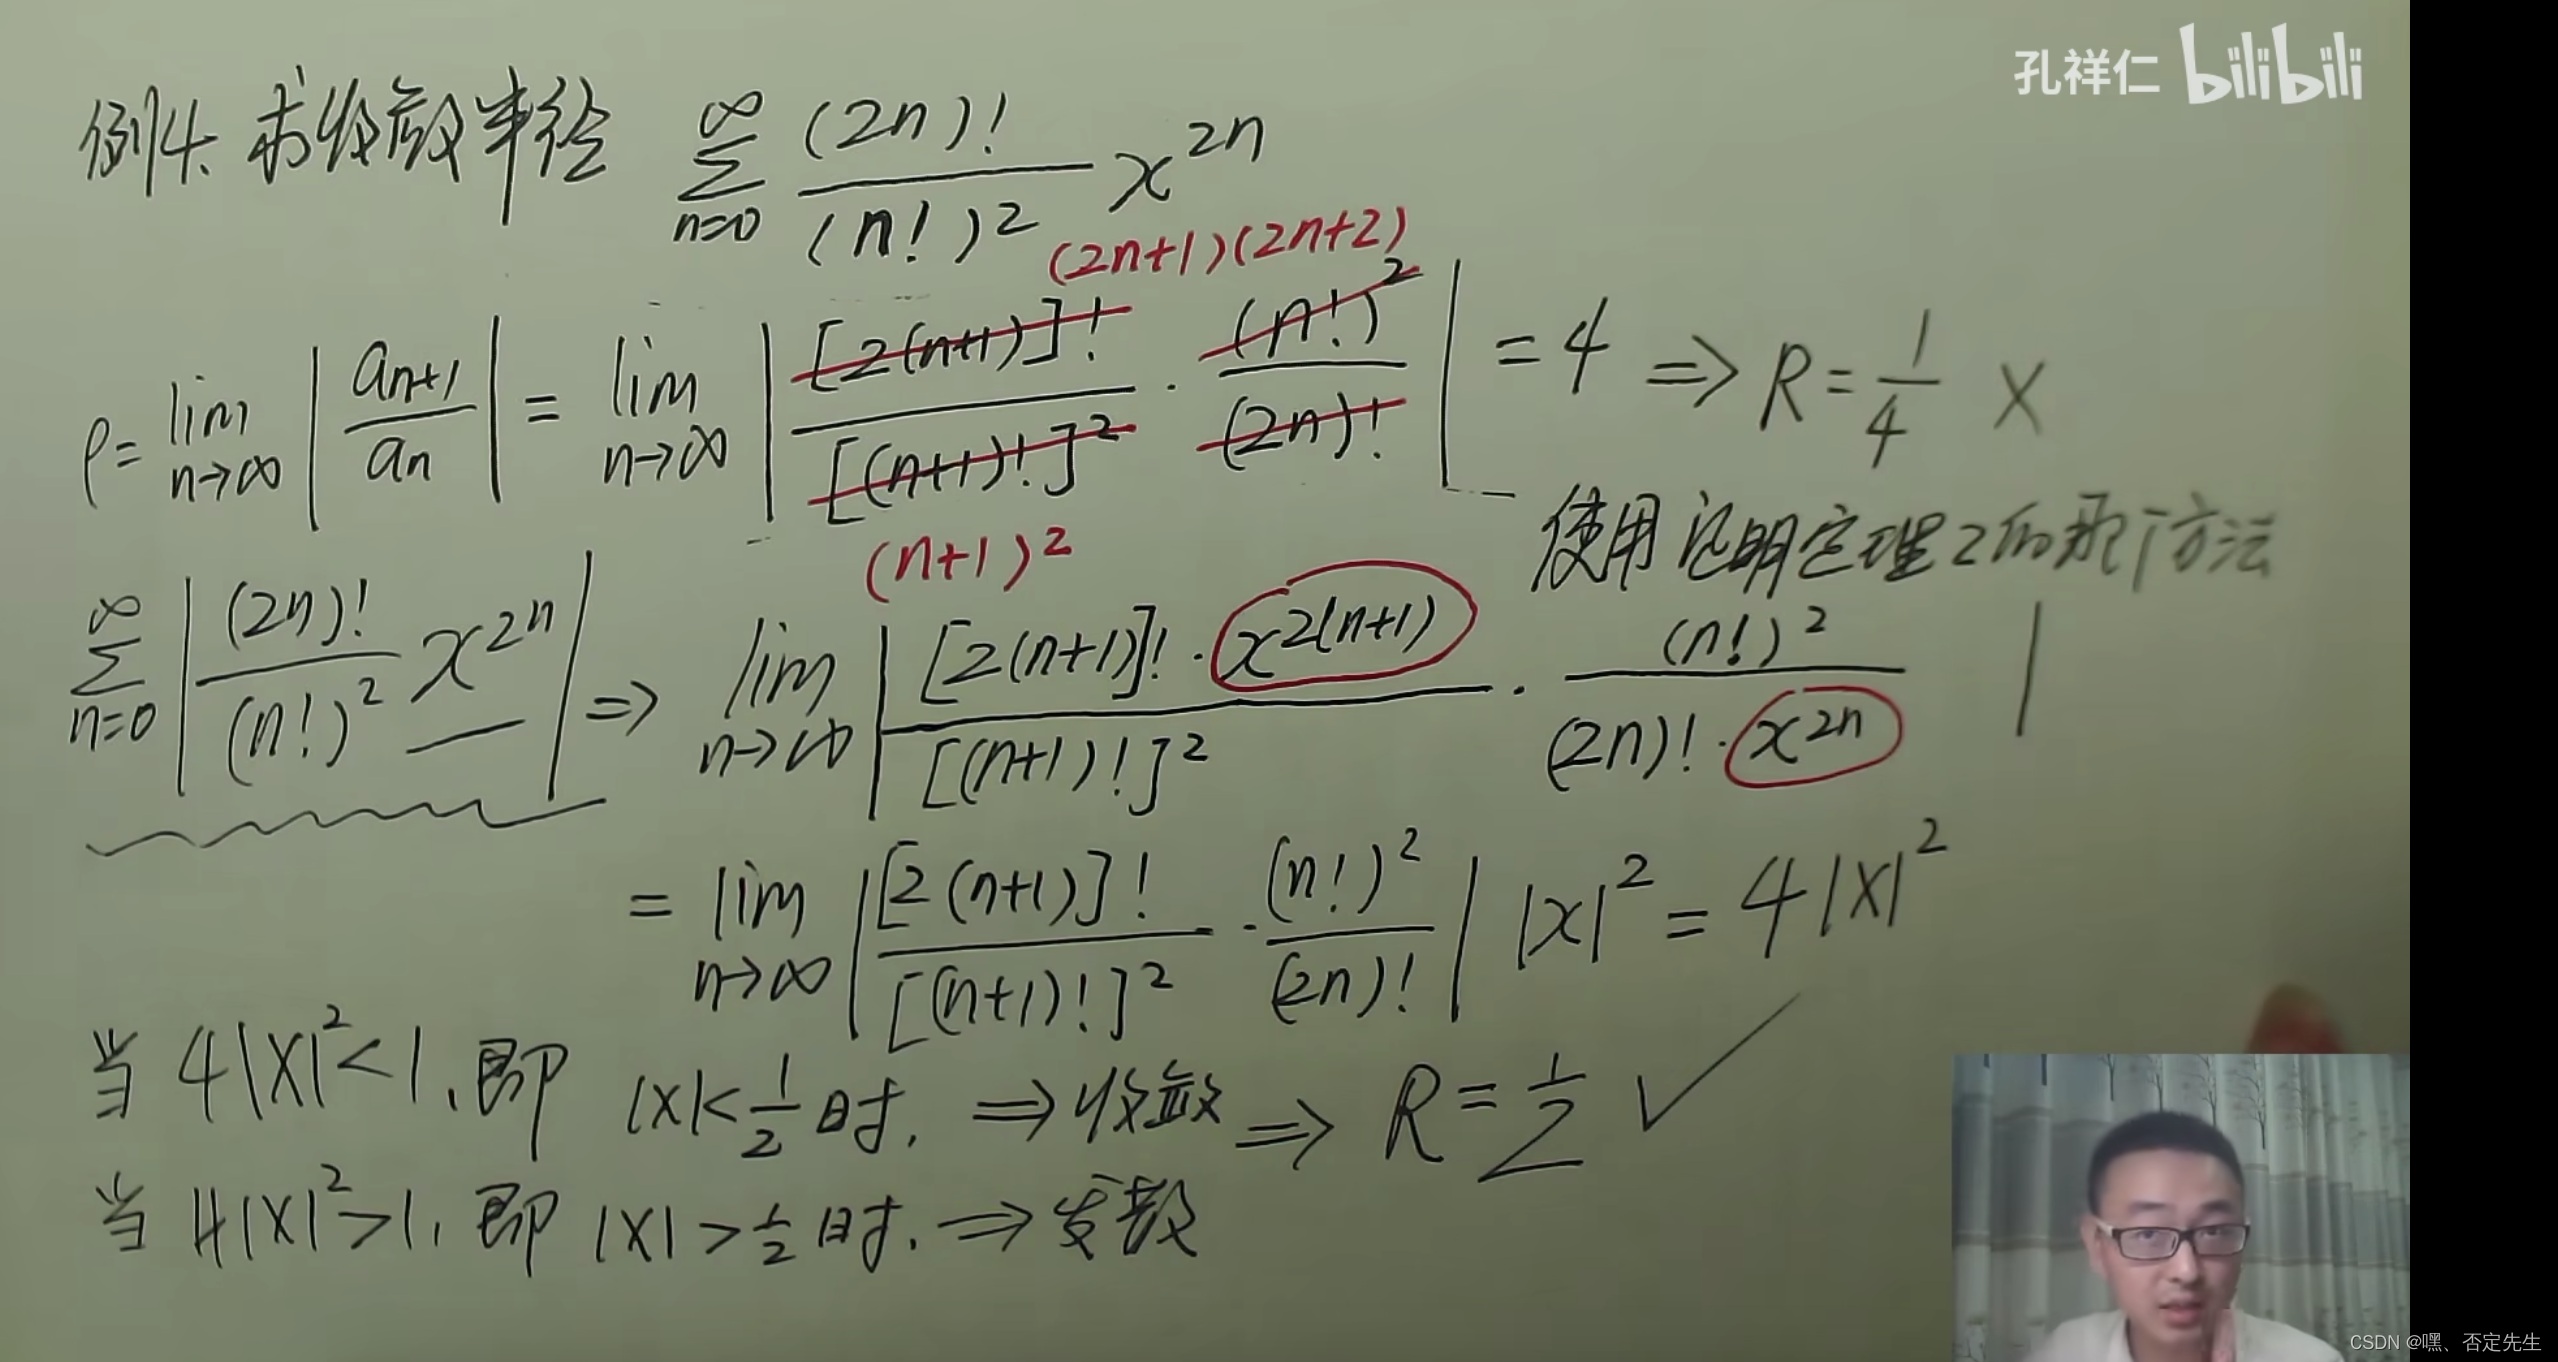 孔祥仁 bilibili
例4. 求收敛半径 ∞ Σ n=0 (2n)! / (n!)² x²ⁿ
(2n+1)(2n+2)
ρ = lim n→∞ | aₙ₊₁ / aₙ | = lim n→∞ | [2(n+1)]! / [(n+1)!]² · (n!)² / (2n)! | = 4 ⇒ R = 1/4 X
(n+1)²
使用证明定理2的那门方法
∞ Σ n=0 | (2n)! / (n!)² x²ⁿ | ⇒ lim n→∞ | [2(n+1)]! · x²⁽ⁿ⁺¹⁾ / [(n+1)!]² · (n!)² / (2n)! · x²ⁿ |
= lim n→∞ | [2(n+1)]! / [(n+1)!]² · (n!)² / (2n)! | |x|² = 4|x|²
当 4|x|² < 1, 即 |x| < 1/2 时, ⇒ 收敛 ⇒ R = 1/2 ✓
当 4|x|² > 1, 即 |x| > 1/2 时, ⇒ 发散
CSDN @嘿、否定先生